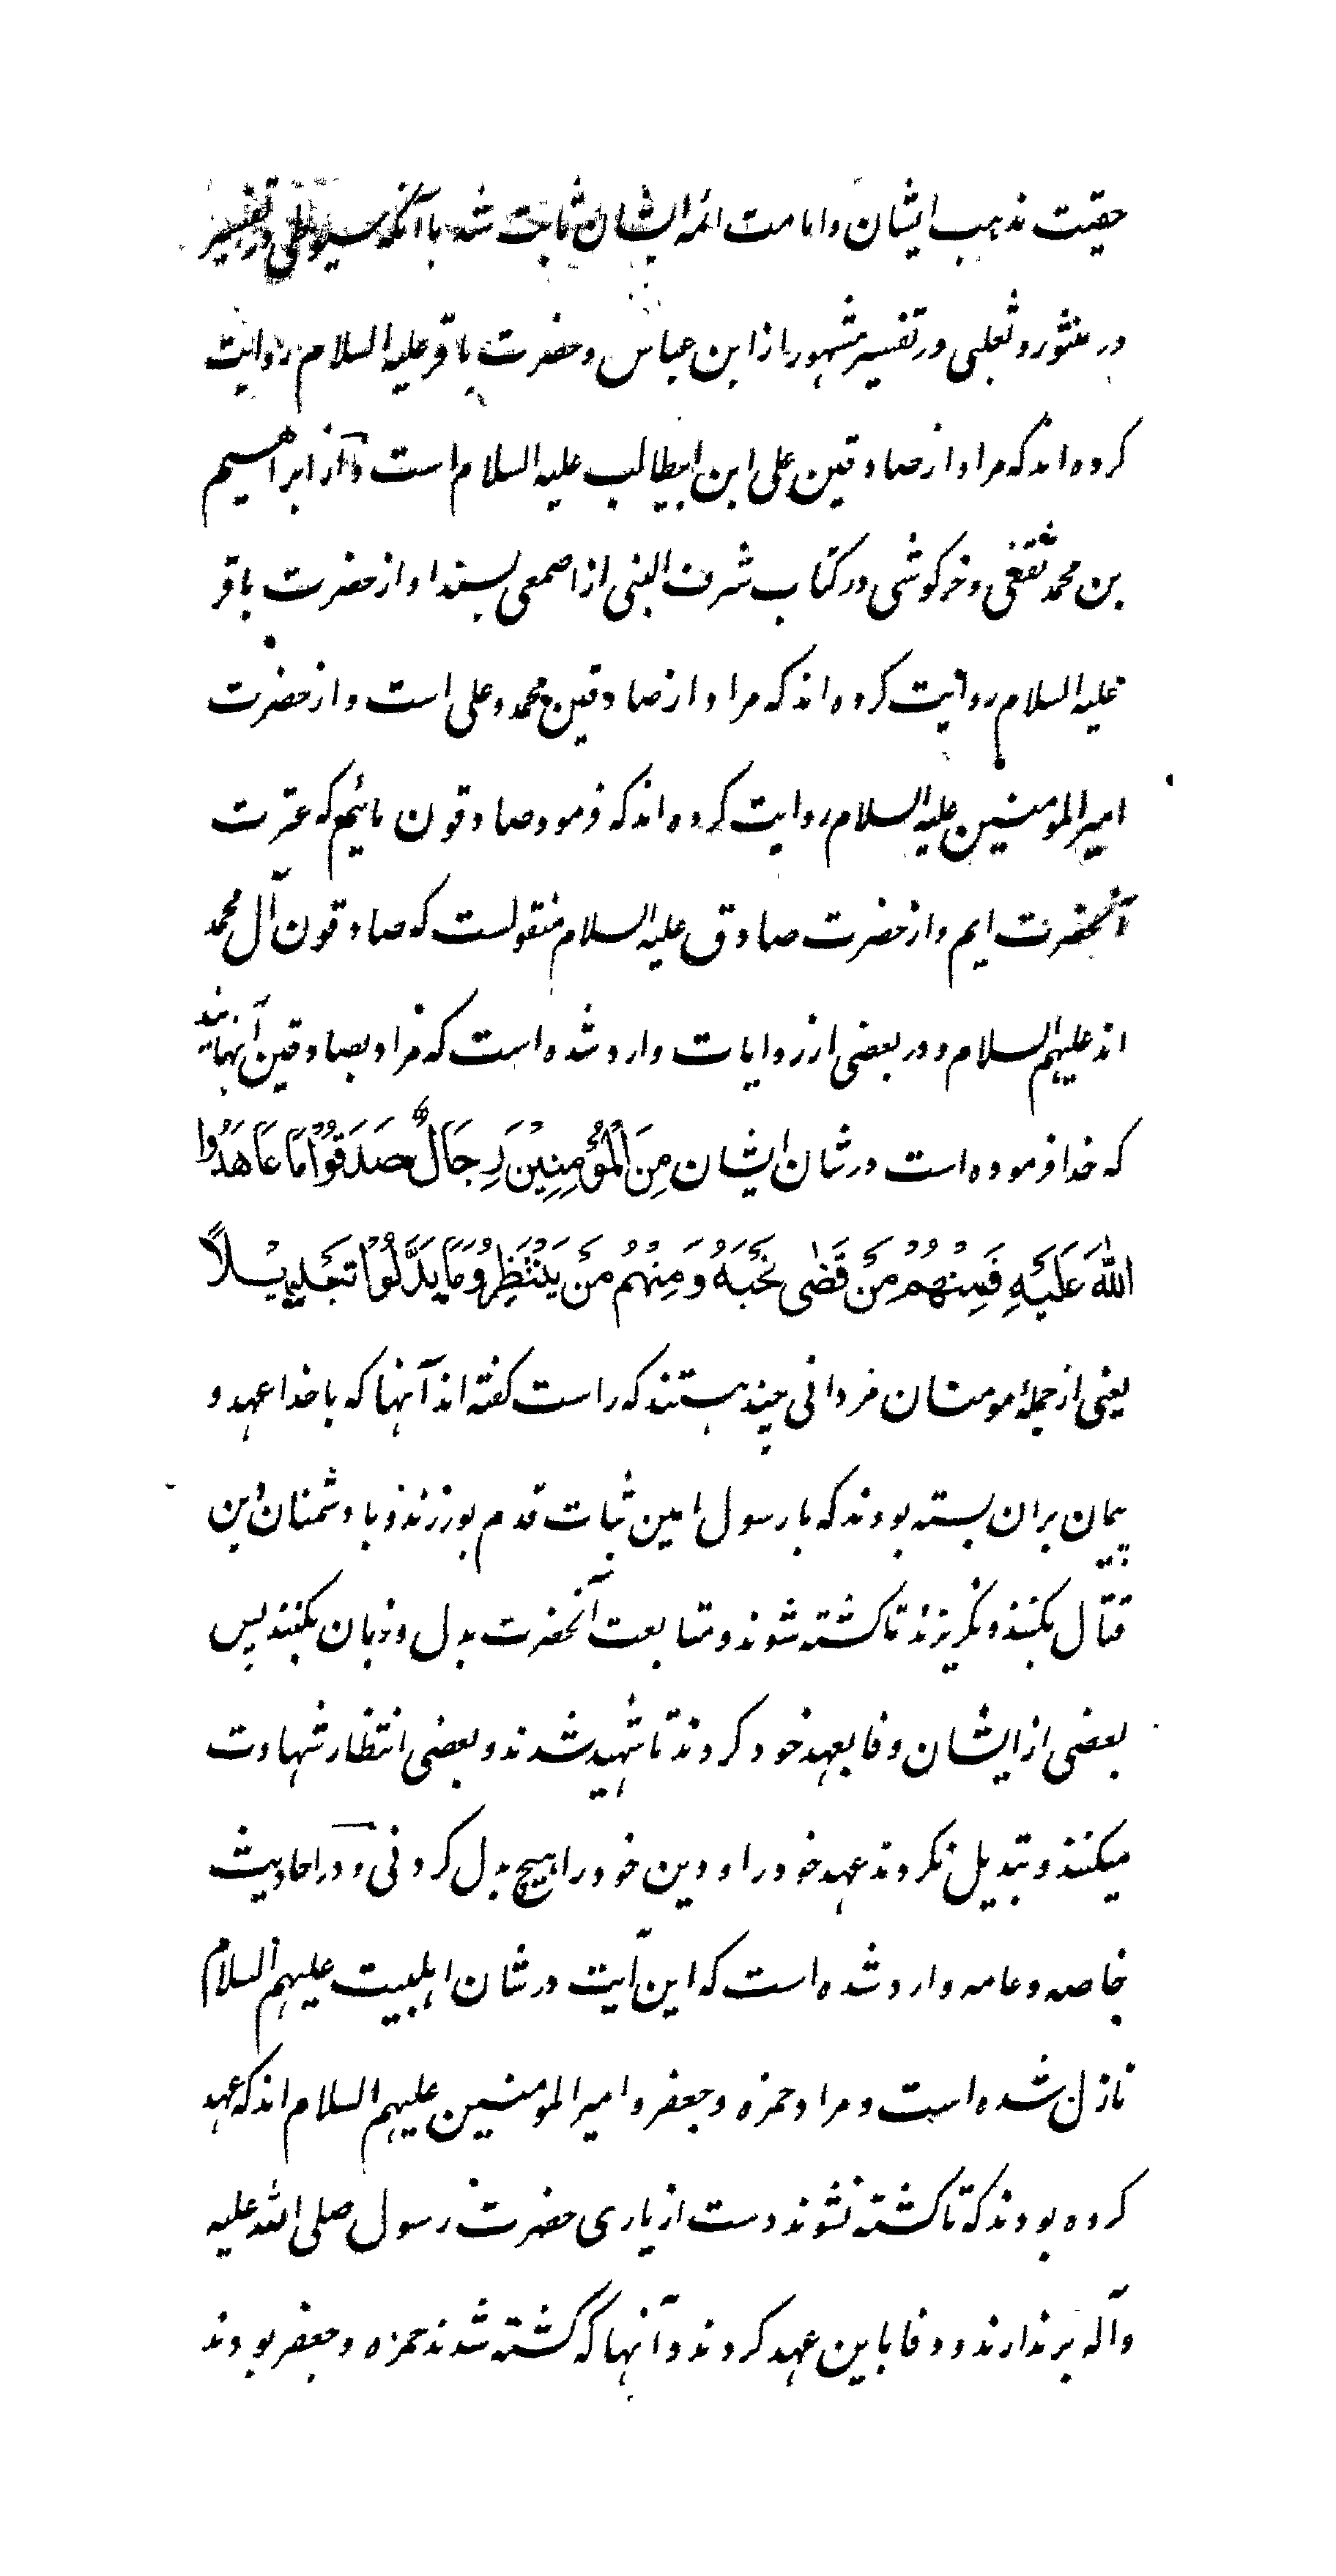 حقیت مذهب ایشان و امامت ائمه ایشان ثابت شد با آنکه سیوطی در تفسیر
در منثور و ثعلبی در تفسیر مشهور از ابن عباس و حضرت باقر علیه السلام روایت
کرده اند که مراد از صادقین علی ابن ابیطالب علیه السلام است و از ابراهیم
بن محمد ثقفی و خرکوشی در کتاب شرف النبی از اصمعی بسند او از حضرت باقر
علیه السلام روایت کرده اند که مراد از صادقین محمد و علی است و از حضرت
امیر المومنین علیه السلام روایت کرده اند که فرمود صادقون مائیم که عترت
آنحضرت ایم و از حضرت صادق علیه السلام منقولست که صادقون آل محمد
اند علیهم السلام و در بعضی از روایات وارد شده است که مراد بصادقین آنهایند
که خدا فرموده است در شان ایشان مِنَ الْمُؤْمِنِیْنَ رِجَالٌ صَدَقُوْا مَا عَاهَدُوا
اللّٰهَ عَلَیْهِ فَمِنْهُمْ مَنْ قَضٰی نَحْبَهُ وَ مِنْهُمْ مَنْ یَنْتَظِرُ وَ مَا بَدَّلُوْا تَبْدِیْلاً
یعنی از جملهٔ مومنان مردانی چند هستند که راست کفته اند آنها که با خدا عهد و
پیمان بران بسته بودند که با رسول امین ثبات قدم بورزند و با دشمنان دین
قتال بکنند و نکریزند تا کشته شوند و متابعت آنحضرت بدل و زبان بکنند پس
بعضی از ایشان وفا بعهد خود کردند تا شهید شدند و بعضی انتظار شهادت
میکنند و تبدیل نکردند عهد خود را و دین خود را هیچ بدل کردنی و در احادیث
خاصه و عامه وارد شده است که این آیت در شان اهلبیت علیهم السلام
نازل شده است و مراد حمزه و جعفر و امیر المومنین علیهم السلام اند که عهد
کرده بودند که تا کشته نشوند دست از یاری حضرت رسول صلی الله علیه
و آله برندارند و وفا باین عهد کردند و آنها که کشته شدند حمزه و جعفر بودند